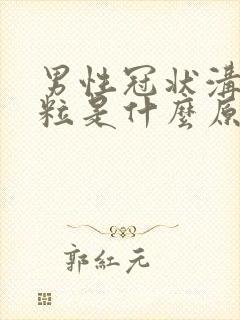 男性冠狀溝
粒是什麼原
郭紅元